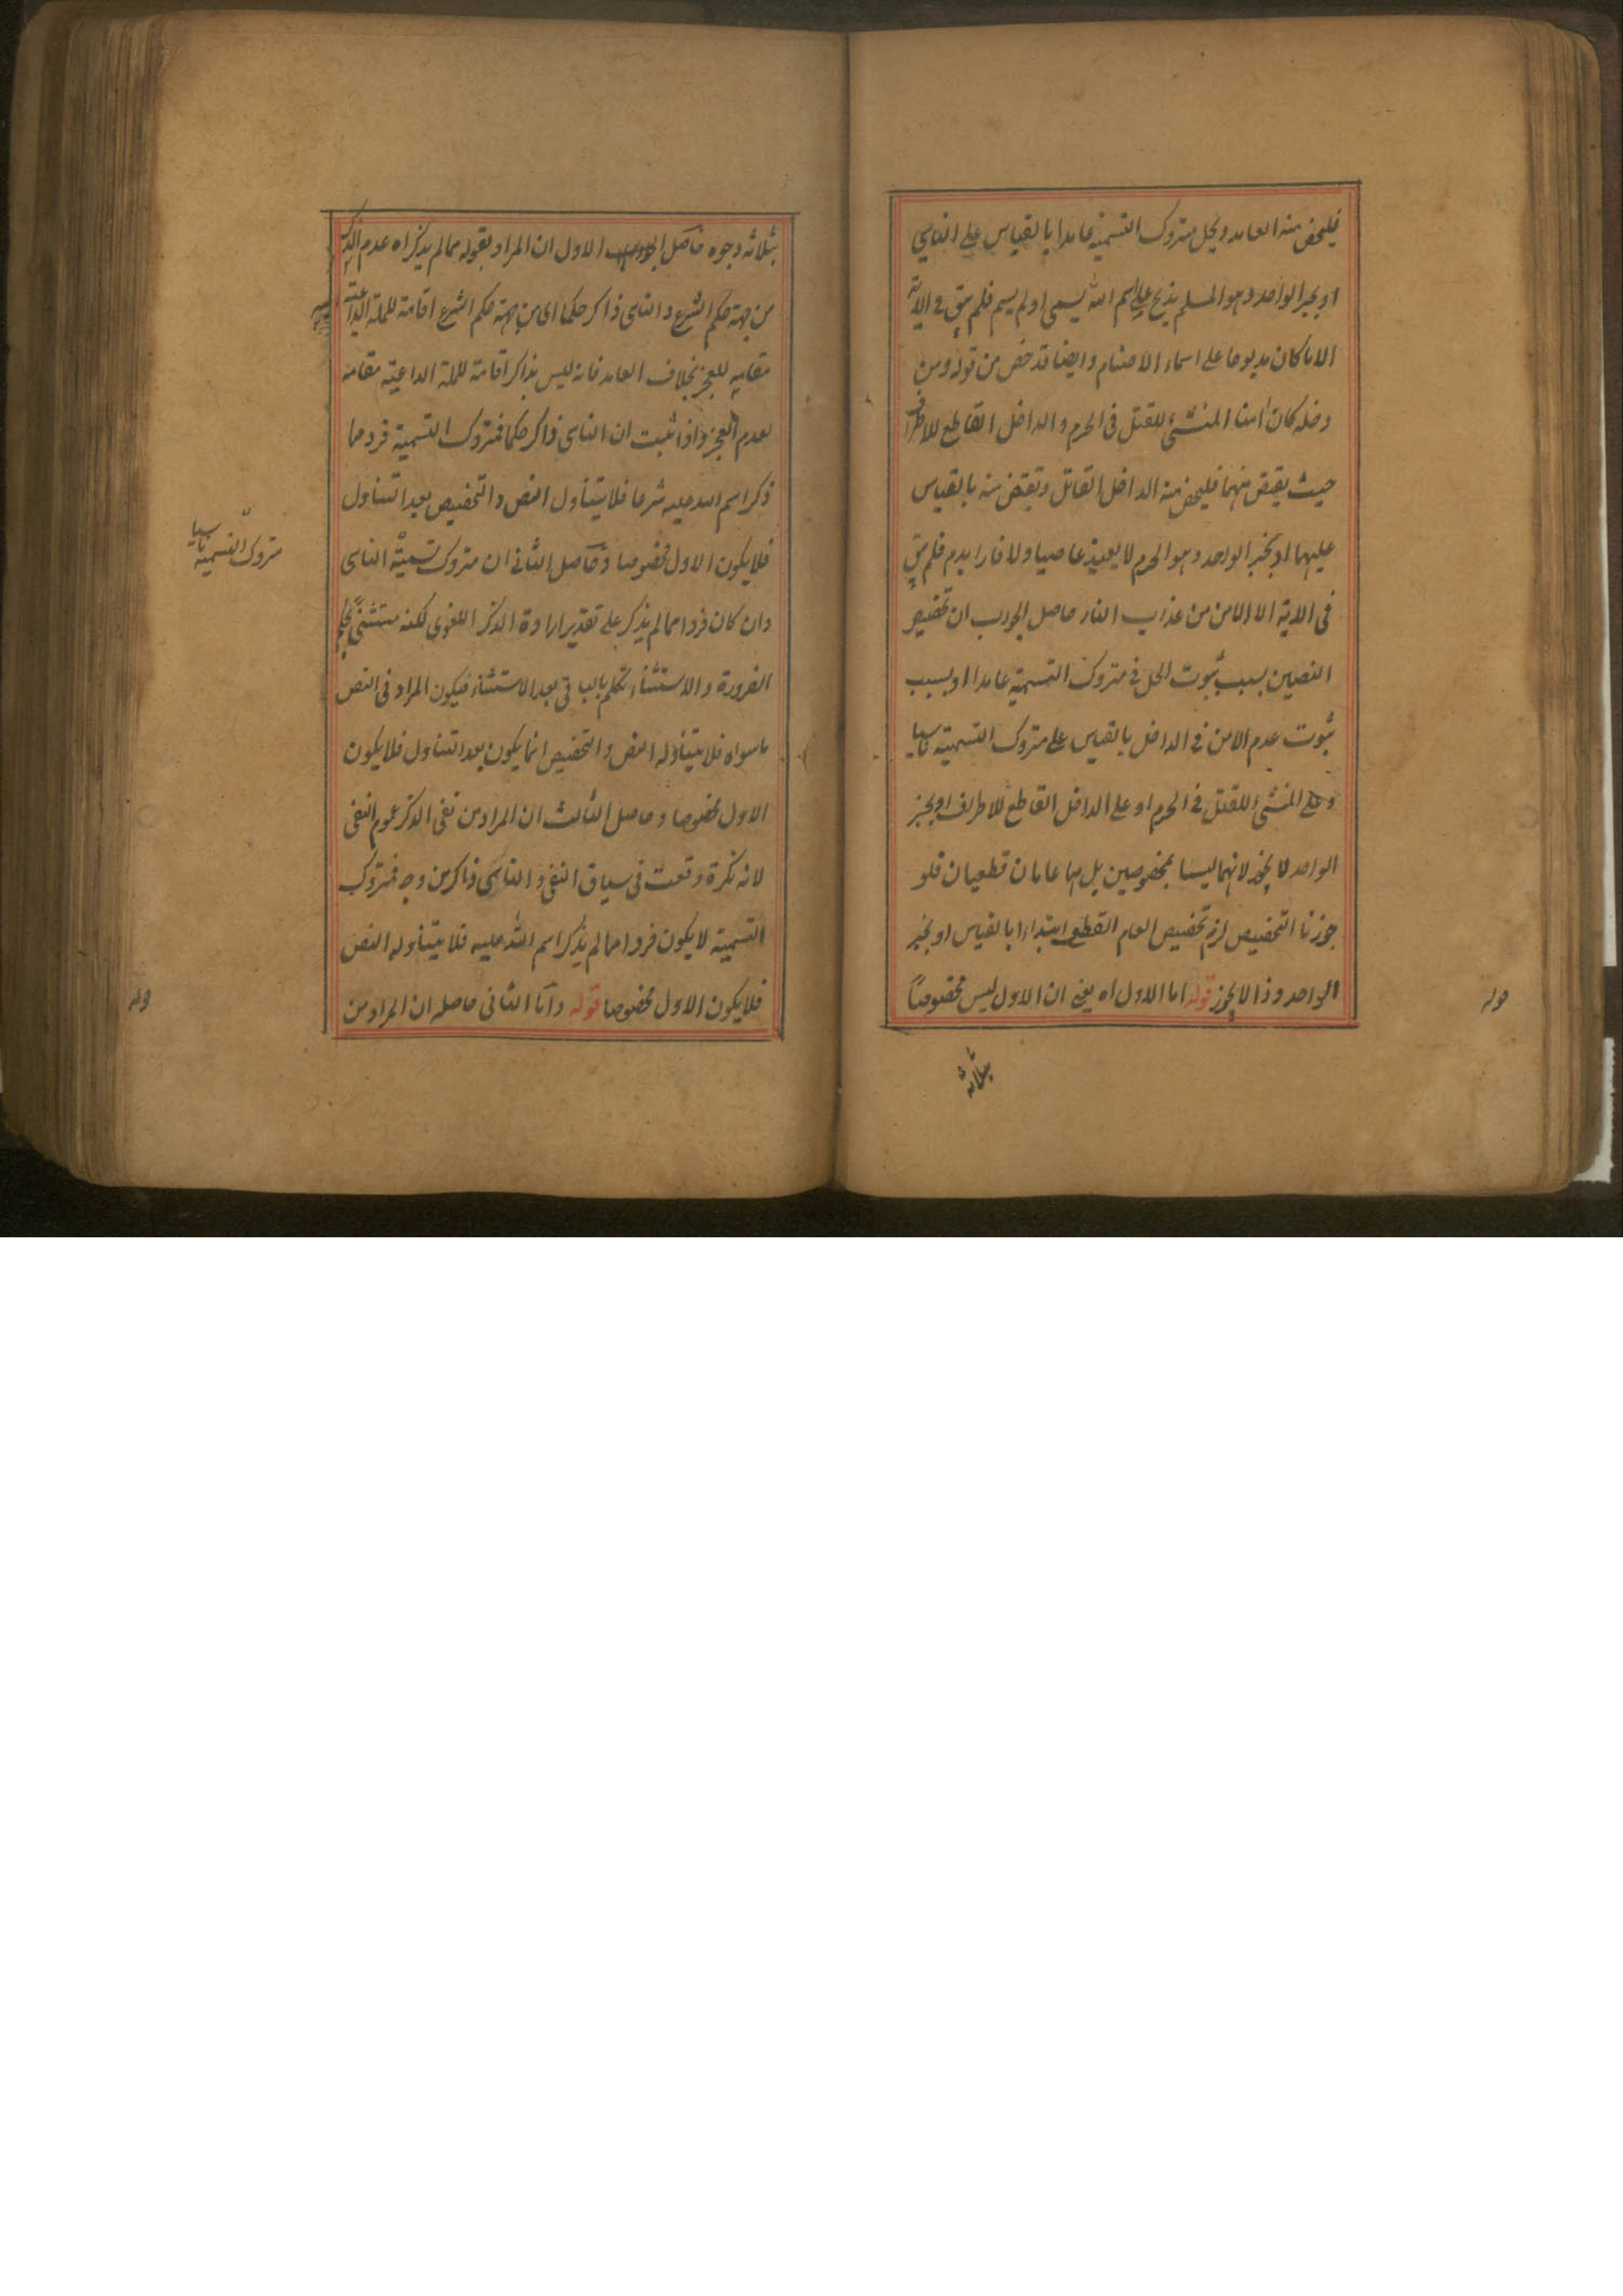 فليخص منه العامد ويحل متروك التسمية عامدا بالقياس على الناسي
او بخبر الواحد وهو المسلم يذبح على اسم الله يسمى او لم يسم فلم يبق فى الآية
الا ما كان مذبوحا على اسماء الاصنام وايضا قد خص من قوله ومن
دخله كان امنا المنشئ للقتل فى الحرم والداخل القاطع للاطراف
حيث يقتص منهما فليخص منه الداخل القاتل ويقتص منه بالقياس
عليهما او بخبر الواحد وهو الحرم لا يعيذ عاصيا ولا فارا بدم فلم يبق
فى الاية الا الامن من عذاب النار حاصل الجواب ان تخصيص
النصين بسبب ثبوت الحل فى متروك التسمية عامدا او بسبب
ثبوت عدم الامن فى الداخل بالقياس على متروك التسمية ناسيا
وعلى المنشئ للقتل فى الحرم او على الداخل القاطع للاطراف او بخبر
الواحد لا يجوز لانهما ليسا بمخصوصين بل هما عامان قطعيان فلو
جوزنا التخصيص لزم تخصيص العام القطعى ابتداء بالقياس او بخبر
الواحد وذا لا يجوز قوله اما الاول اه يعنى ان الاول ليس مخصوصاً
قوله
بثلاثة
بثلاثة وجوه حاصل الاول ان المراد بقوله مما لم يذكر اه عدم الذكر
من جهة حكم الشرع والناسى ذاكر حكما اى من جهة حكم الشرع اقامة للملة الداعية
مقامه للعجز بخلاف العامد فانه ليس بذاكر اقامة للملة الداعية مقامه
لعدم العجز واذا ثبت ان الناسى ذاكر حكما فمتروك التسمية فرد مما
ذكر اسم الله عليه شرعا فلا يتناول النص والتخصيص بعد التناول
فلا يكون الاول مخصوصا وحاصل الثانى ان متروك تسمية الناسى
وان كان فردا مما لم يذكر على تقدير ارادة الذكر اللغوى لكنه مستثنى بحكم
الضرورة والاستثناء تكلم بالباقى بعد الاستثناء فيكون المراد فى النص
ما سواه فلا يتناوله النص والتخصيص انما يكون بعد التناول فلا يكون
الاول مخصوصا وحاصل الثالث ان المراد من نفى الذكر عموم النفى
لانه نكرة وقعت فى سياق النفى والناسى ذاكر من وجه فمتروك
التسمية لا يكون فردا مما لم يذكر اسم الله عليه فلا يتناوله النص
فلا يكون الاول مخصوصا قوله واما الثانى حاصله ان المراد من
متروك التسمية ناسيا
قوله